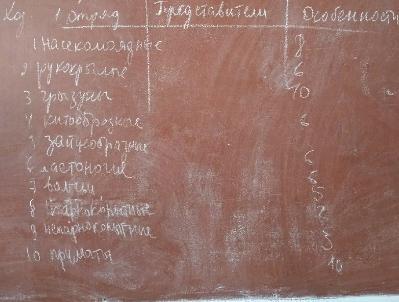 Ход 1 Отряд Представители Особенности
1 насекомоядные 8
2 рукокрылые 6
3 грызуны 10
4 китообразные 6
5 зайцеобразные
6 ластоногие 6
7 5
8 парнокопытные
9 непарнокопытные 3
10 примата 10